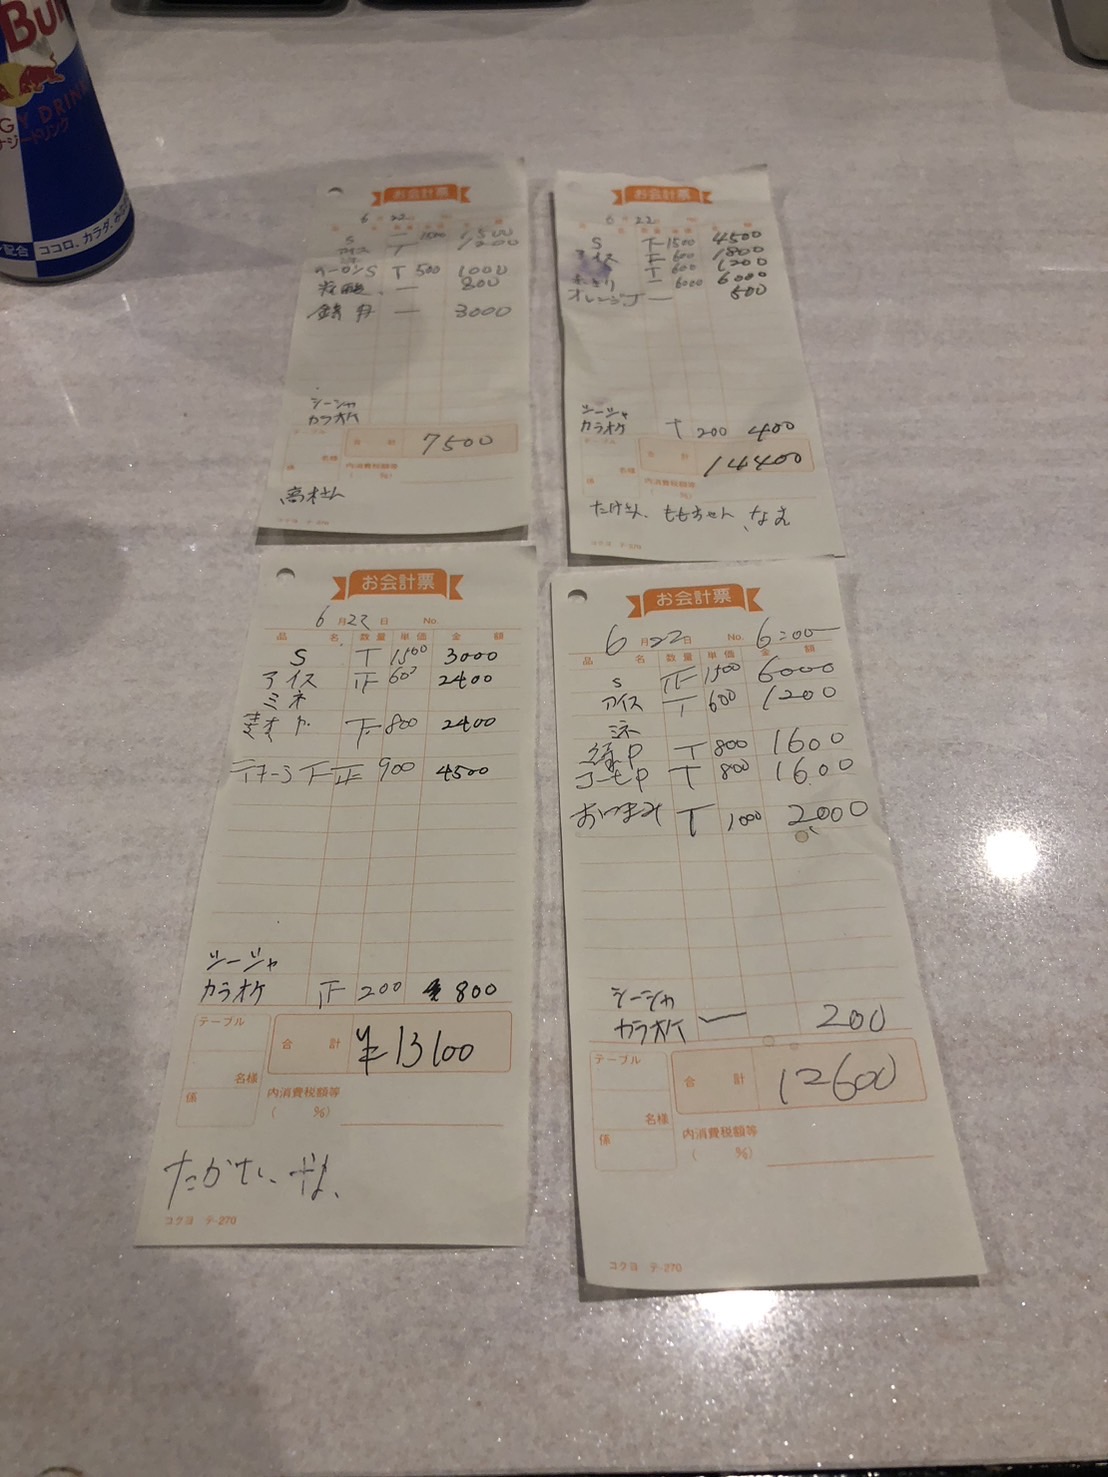 Bu
GY DRINK
ナジードリンク
配合 ココロ、カラダ、み
お会計票
6月22日
S 一 1500 1500
アイス T 1200
ウーロンS T 500 1000
一 800
一 3000
シーシャ
カラオケ
合計 7500
内消費税額等
( %)
高木さん
お会計票
6月22日
S 下 1500 4500
アイス 下 600 1800
T 600 1200
一 6000 6000
オレンジJ 一 500
シーシャ
カラオケ T 200 400
テーブル
合計 14400
名様
係 内消費税額等
( %)
たけさん、ももちゃん、なえ
お会計票
6月22日 No.
品名 数量 単価 金額
S T 1500 3000
アイス 正 600 2400
ミネ
下 800 2400
正 900 4500
シーシャ
カラオケ 正 200 800
テーブル
合計 ¥13100
名様
係 内消費税額等
( %)
コクヨ テ-270
お会計票
6月22日 No. 6:00
品名 数量 単価 金額
S 正 1500 6000
アイス T 600 1200
ミネ
緑P T 800 1600
コーヒP T 800 1600
おつまみ T 1000 2000
シーシャ
カラオケ 一 200
テーブル
合計 12600
名様
係 内消費税額等
( %)
コクヨ テ-270